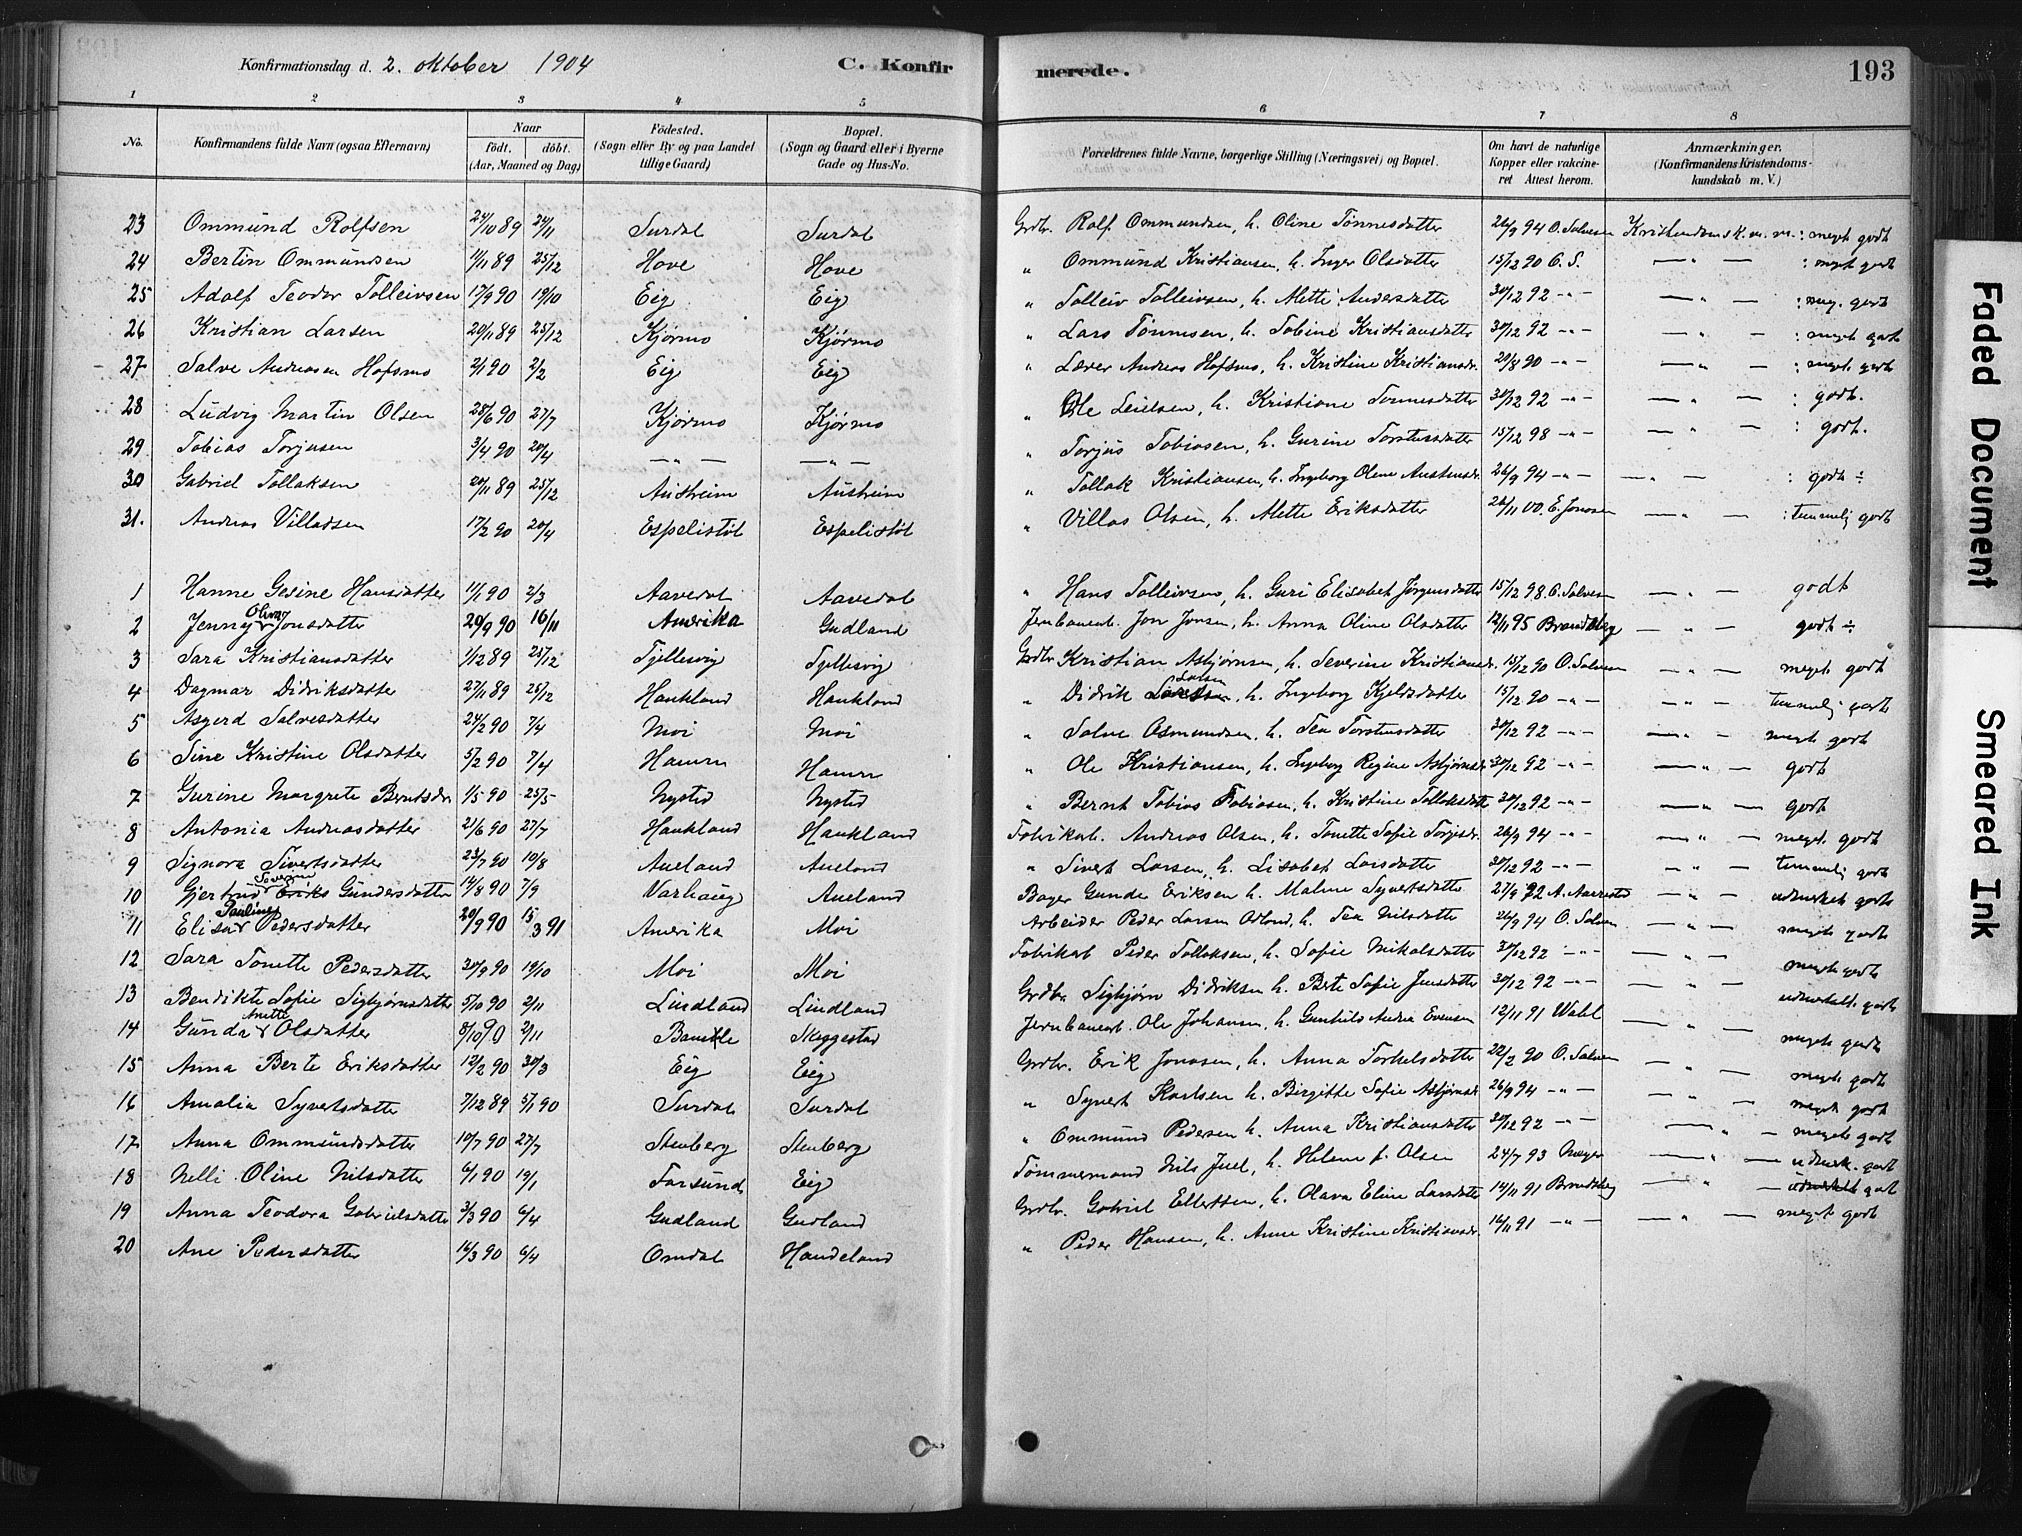 Konfirmationsdag d. 2. oktober 1904 C. Konfirmerede. 193
1 2 3 4 5 6 7 8
No. Konfirmandens fulde Navn (ogsaa Efternavn) Naar födt. döbt. (Aar, Maaned og Dag) Födested. (Sogn eller By og paa Landet tillige Gaard) Bopæl. (Sogn og Gaard eller i Byerne Gade og Hus-No. Forældrenes fulde Navne, borgerlige Stilling (Næringsvei) og Bopæl. Om havt de naturlige Kopper eller vakcineret Attest herom. Anmærkninger. (Konfirmandens Kristendomskundskab m. V.)
23 Ommund Rolfsen 24/10 89 24/11 Surdal Surdal Grdbr. Rolf Ommundsen, h. Oline Tønnesdatter 26/9 94 O. Salvesen Kristendomsk. m. m. : meget godt
24 Bertin Ommundsen 11/11 89 25/12 Hove Hove " Ommund Kristiansen, h. Inger Olsdatter 15/12 90 O. S. — " — : meget godt
25 Adolf Teodor Tolleivsen 17/9 90 19/10 Eig Eig " Tolleiv Tolleivsen, h. Mette Andersdatter 30/12 92 -"- — " — : meg. godt
26 Kristian Larsen 20/11 89 25/12 Kjørmo Kjørmo " Lars Tønnesen, h. Tobine Kristiansdatter 30/12 92 -"- — " — : meget godt
27 Salve Andreasen Hofsmo 2/1 90 2/2 Eig Eig " Lærer Andreas Hofsmo, h. Kristine Kristiansdr. 20/8 90 -"- — " — : meget godt
28 Ludvig Martin Olsen 28/6 90 27/7 Kjørmo Kjørmo " Ole Leielsen, h. Kristiane Tønnesdatter 30/12 92 -"- — " — : godt.
29 Tobias Torjusen 3/4 90 20/4 — " — — " — " Torjus Tobiasen, h. Gurine Torstensdatter 15/12 98 -"- — " — : godt.
30 Gabriel Tollaksen 20/11 89 25/12 Austreim Austreim " Tollak Kristiansen, h. Ingeborg Olene Austensdr. 26/9 94 -"- — " — : godt ÷
31. Andreas Villadsen 17/2 90 20/4 Espelistøl Espelistøl " Villas Olsen, h. Mette Eriksdatter 24/11 00 E. Jonasen — " — : temmelig godt
1 Hanne Gesine Hansdatter 11/1 90 2/3 Aavedal Aavedal " Hans Tolleivsen, h. Guri Elisabet Jørgensdatter 15/12 98 O. Salvesen — " — godt
2 Jenny Olivia Jonsdatter 20/9 90 16/11 Amerika Gudland Jernbanearb. Jon Jonsen, h. Anna Oline Olsdatter 12/11 95 Brandsberg — " — godt ÷
3 Sara Kristiansdatter 1/12 89 25/12 Tjellesvig Tjellesvig Grdbr. Kristian Asbjørnsen, h. Severine Kristiansdr. 15/12 90 O. Salvesen — " — meget godt
4 Dagmar Didriksdatter 27/11 89 25/12 Haukland Haukland " Didrik Larsen, h. Ingeborg Kjeldsdatter 15/12 90 -"- — " — temmelig godt
5 Asgerd Salvesdatter 24/2 90 7/4 Moi Moi " Salve Osmundsen, h. Tea Torstensdatter 30/12 92 -"- — " — meget godt
6 Sine Kristine Olsdatter 5/2 90 7/4 Hamrn Hamrn " Ole Kristiansen, h. Ingeborg Regine Asbjørnsdr. 30/12 92 -"- — " — godt
7 Gurine Margrete Berntsdr. 1/5 90 25/5 Nysted Nysted " Bernt Tobias Tobiasen, h. Kristine Tollaksdatter 30/12 92 -"- — " — godt
8 Antonia Andreasdatter 21/6 90 27/7 Haukland Haukland Fabrikarb. Andreas Olsen, h. Tonette Sofie Torjusdr. 26/9 94 -"- — " — meget godt
9 Signora Sivertsdatter 23/7 90 10/8 Aueland Aueland " Sivert Larsen, h. Lisabet Larsdatter 30/12 92 -"- — " — temmelig godt
10 Gjertrud Severine Gundersdatter 14/8 90 7/9 Varhaug Aueland Bager Gunde Eriksen h. Malene Syvertsdatter 27/9 92 A. Aarrestad — " — udmerket godt
11 Elisa Pauline Pedersdatter 20/9 90 15/3 91 Amerika Moi Arbeider Peder Larsen Osland, h. Tea Nilsdatter 26/9 94 O. Salvesen — " — meget godt
12 Sara Tonette Pedersdatter 30/9 90 19/10 Moi Moi Fabrikarb. Peder Tollaksen, h. Sofie Nikolsdatter 30/12 92 -"- — " — meget godt
13 Bendikte Sofie Sigbjørnsdatter 5/10 90 2/11 Lindland Lindland Grdbr. Sigbjørn Didriksen h. Berte Sofie Jensdatter 30/12 92 -"- — " — udmerket godt
14 Gunda Anette Olsdatter 8/10 90 2/11 Bamble Skeggestad Jernbanearb. Ole Johansen, h. Gunhild Andrea Evensen 12/11 91 Wahl — " — meget godt
15 Anna Berte Eriksdatter 12/2 90 30/3 Eig Eig Grdbr. Erik Jonasen, h. Anna Torkelsdatter 22/2 90 O. Salvesen — " — meget godt
16 Amalia Syvertsdatter 7/12 89 5/1 90 Surdal Surdal " Syvert Karlsen h. Birgitte Sofie Asbjørnsdr. 26/9 94 -"- — " — meget godt
17 Anna Ommundsdatter 10/7 90 27/7 Stenberg Stenberg " Ommund Pedersen h. Anna Kristiansdatter 30/12 92 -"- — " — meget godt
18 Nelli Oline Nilsdatter 6/1 90 19/1 Farsund Eig Tømmermand Nils Juel, h. Helene f. Olsen 24/7 93 Meyer — " — udmerk. godt
19 Anna Teodora Gabrielsdatter 3/3 90 6/4 Gudland Gudland Grdbr. Gabriel Ellertsen, h. Olava Eline Larsdatter 14/11 91 Brandsberg — " — udmerket godt
20 Ane Pedersdatter 16/3 90 6/4 Omdal Haudeland " Peder Hansen, h. Anne Kristine Kristiansdr. 14/11 91 -"- — " — meget godt
Faded Document
Smeared Ink